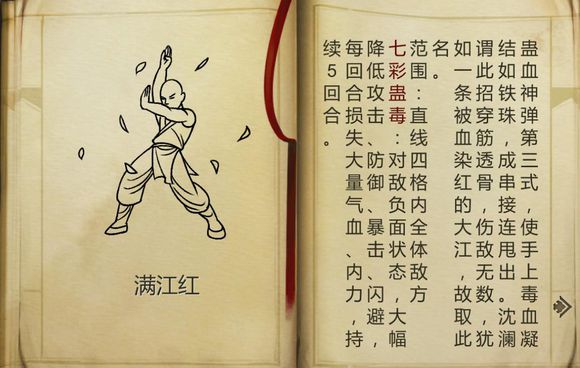 蛊血神弹，第三式，使手上毒血凝
结如铁珠，成串接连甩出。沈澜
谓此招穿筋透骨，伤敌无数，犹
如一条被血染红的大江，故取此
名。
范围：直线四格内全体敌方
七彩蛊毒：对敌负面状态，大幅
降低攻击、防御、暴击、闪避，
每回合损失大量气血、内力，持
续5回合。
满江红